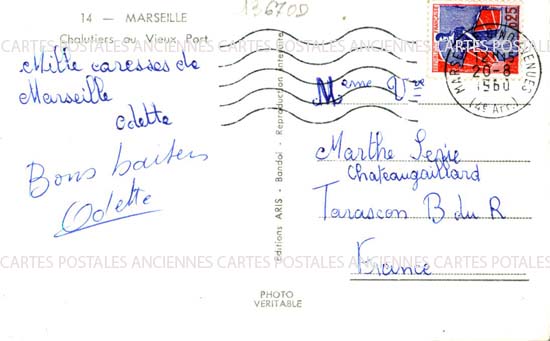 14 — MARSEILLE
Chalutiers au Vieux Port
13670D
Mille caresses de
Marseille
Odette
Bons baisers
Odette
Editions ARIS - Bandol - Reproduction interdite
PHOTO
VERITABLE
0,25
MARSEILLE
20-8
1960
(4e Arr.)
Mme Vve
Marthe
Chateaugaillard
Tarascon B du R
France
CARTES POSTALES ANCIENNES CARTES POSTALES ANCIENNES CARTES POSTALES ANCIENNES
CARTES POSTALES ANCIENNES CARTES POSTALES ANCIENNES CARTES POSTALES ANCIENNES